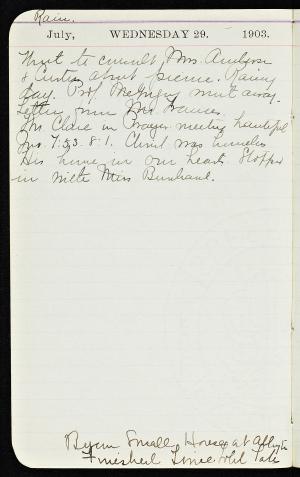 Rain.
July, WEDNESDAY 29. 1903.
Went to consult Mrs. Ambrose
& Curtis about picnic. Rainy
day. Prof. McGregory went away.
Letter from Mr. Frances.
Mr. Clare in Prayer meeting beautiful
Jno. 7:53. 8:1. Christ was homeless
His home in our hearts. Stopped
in with Miss Burnham.
Begun Small House at
Finished